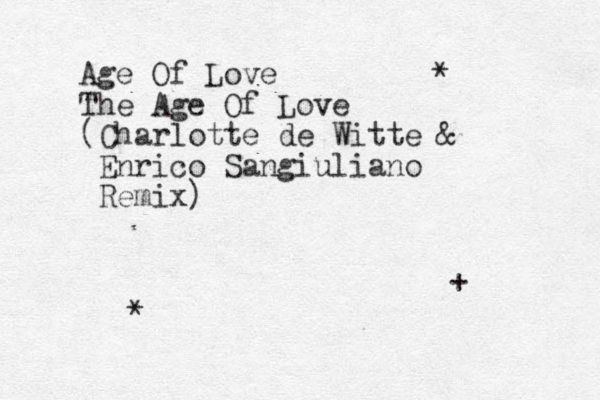 Age Of Love *
The Age Of Love
(Charlotte de Witte &
Enrico Sangiuliano
Remix)
+
*